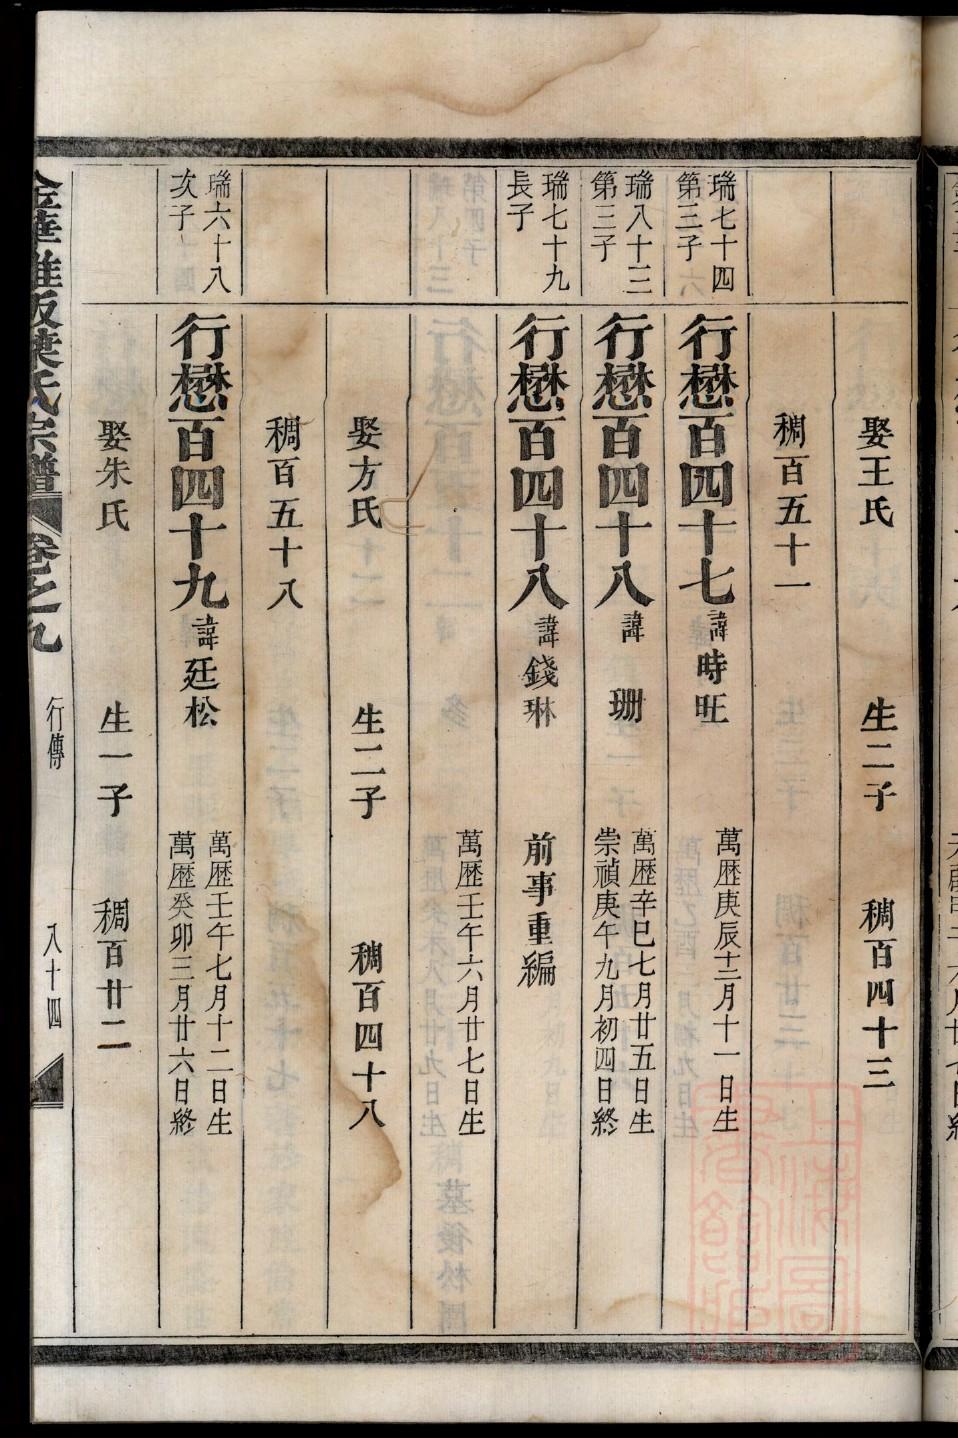 娶王氏 生二子 稠百四十三
稠百五十一
瑞七十四
第三子
行懋百四十七 諱時旺 萬歷庚辰十二月十一日生
瑞八十三
第三子
行懋百四十八 諱珊 萬歷辛巳七月廿五日生
崇禎庚午九月初四日終
瑞七十九
長子
行懋百四十八 諱錢琳 前事重編
萬歷壬午六月廿七日生
娶方氏 生二子 稠百四十八
稠百五十八
瑞六十八
次子
行懋百四十九 諱廷松 萬歷壬午七月十二日生
萬歷癸卯三月廿六日終
娶朱氏 生一子 稠百廿二
葉氏宗譜 卷之九 行傳 八十四